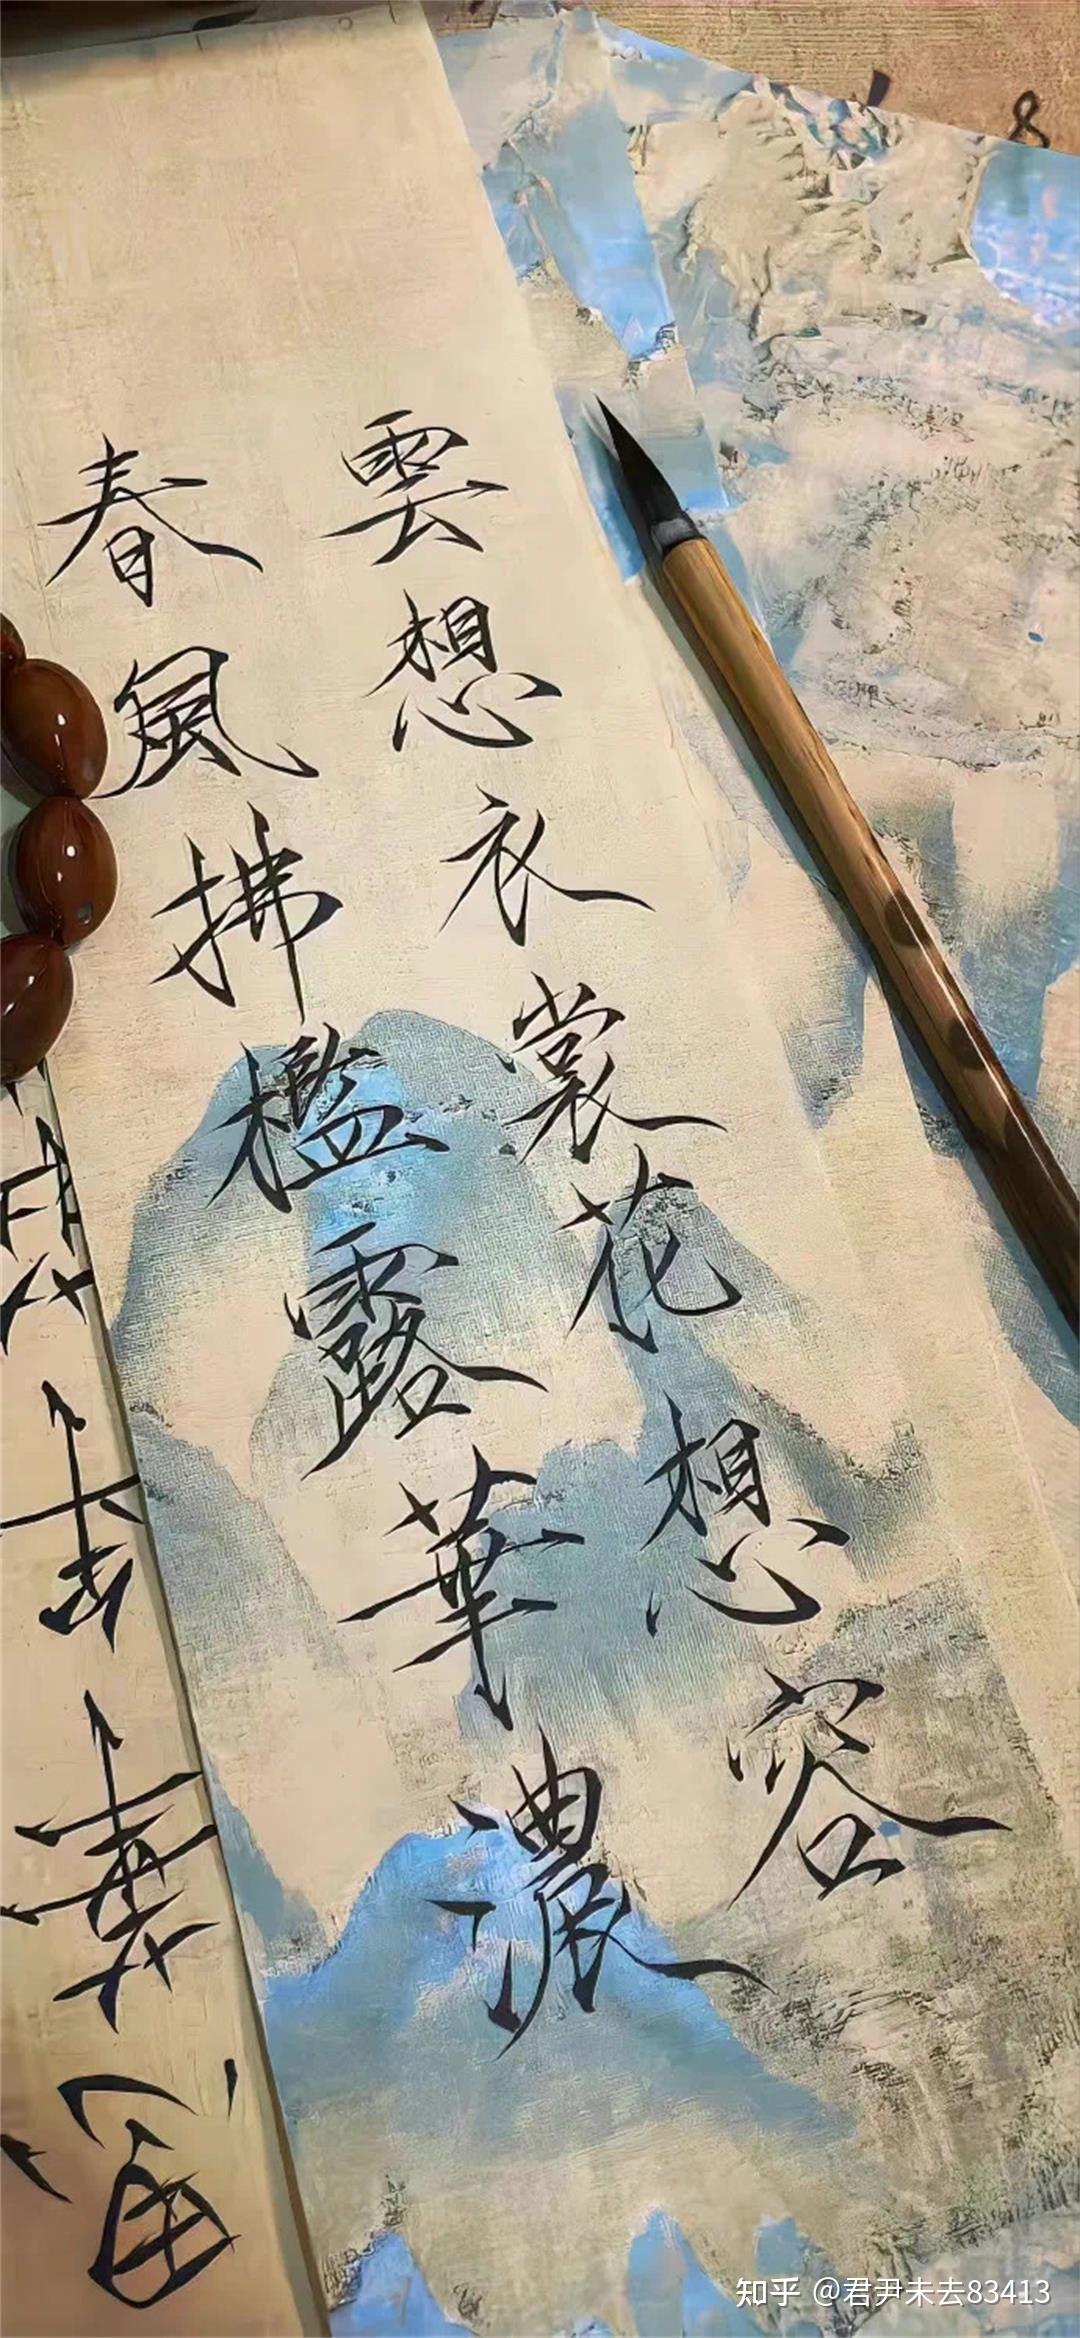 雲想衣裳花想容
春風拂檻露華濃
知乎 @君尹未去83413